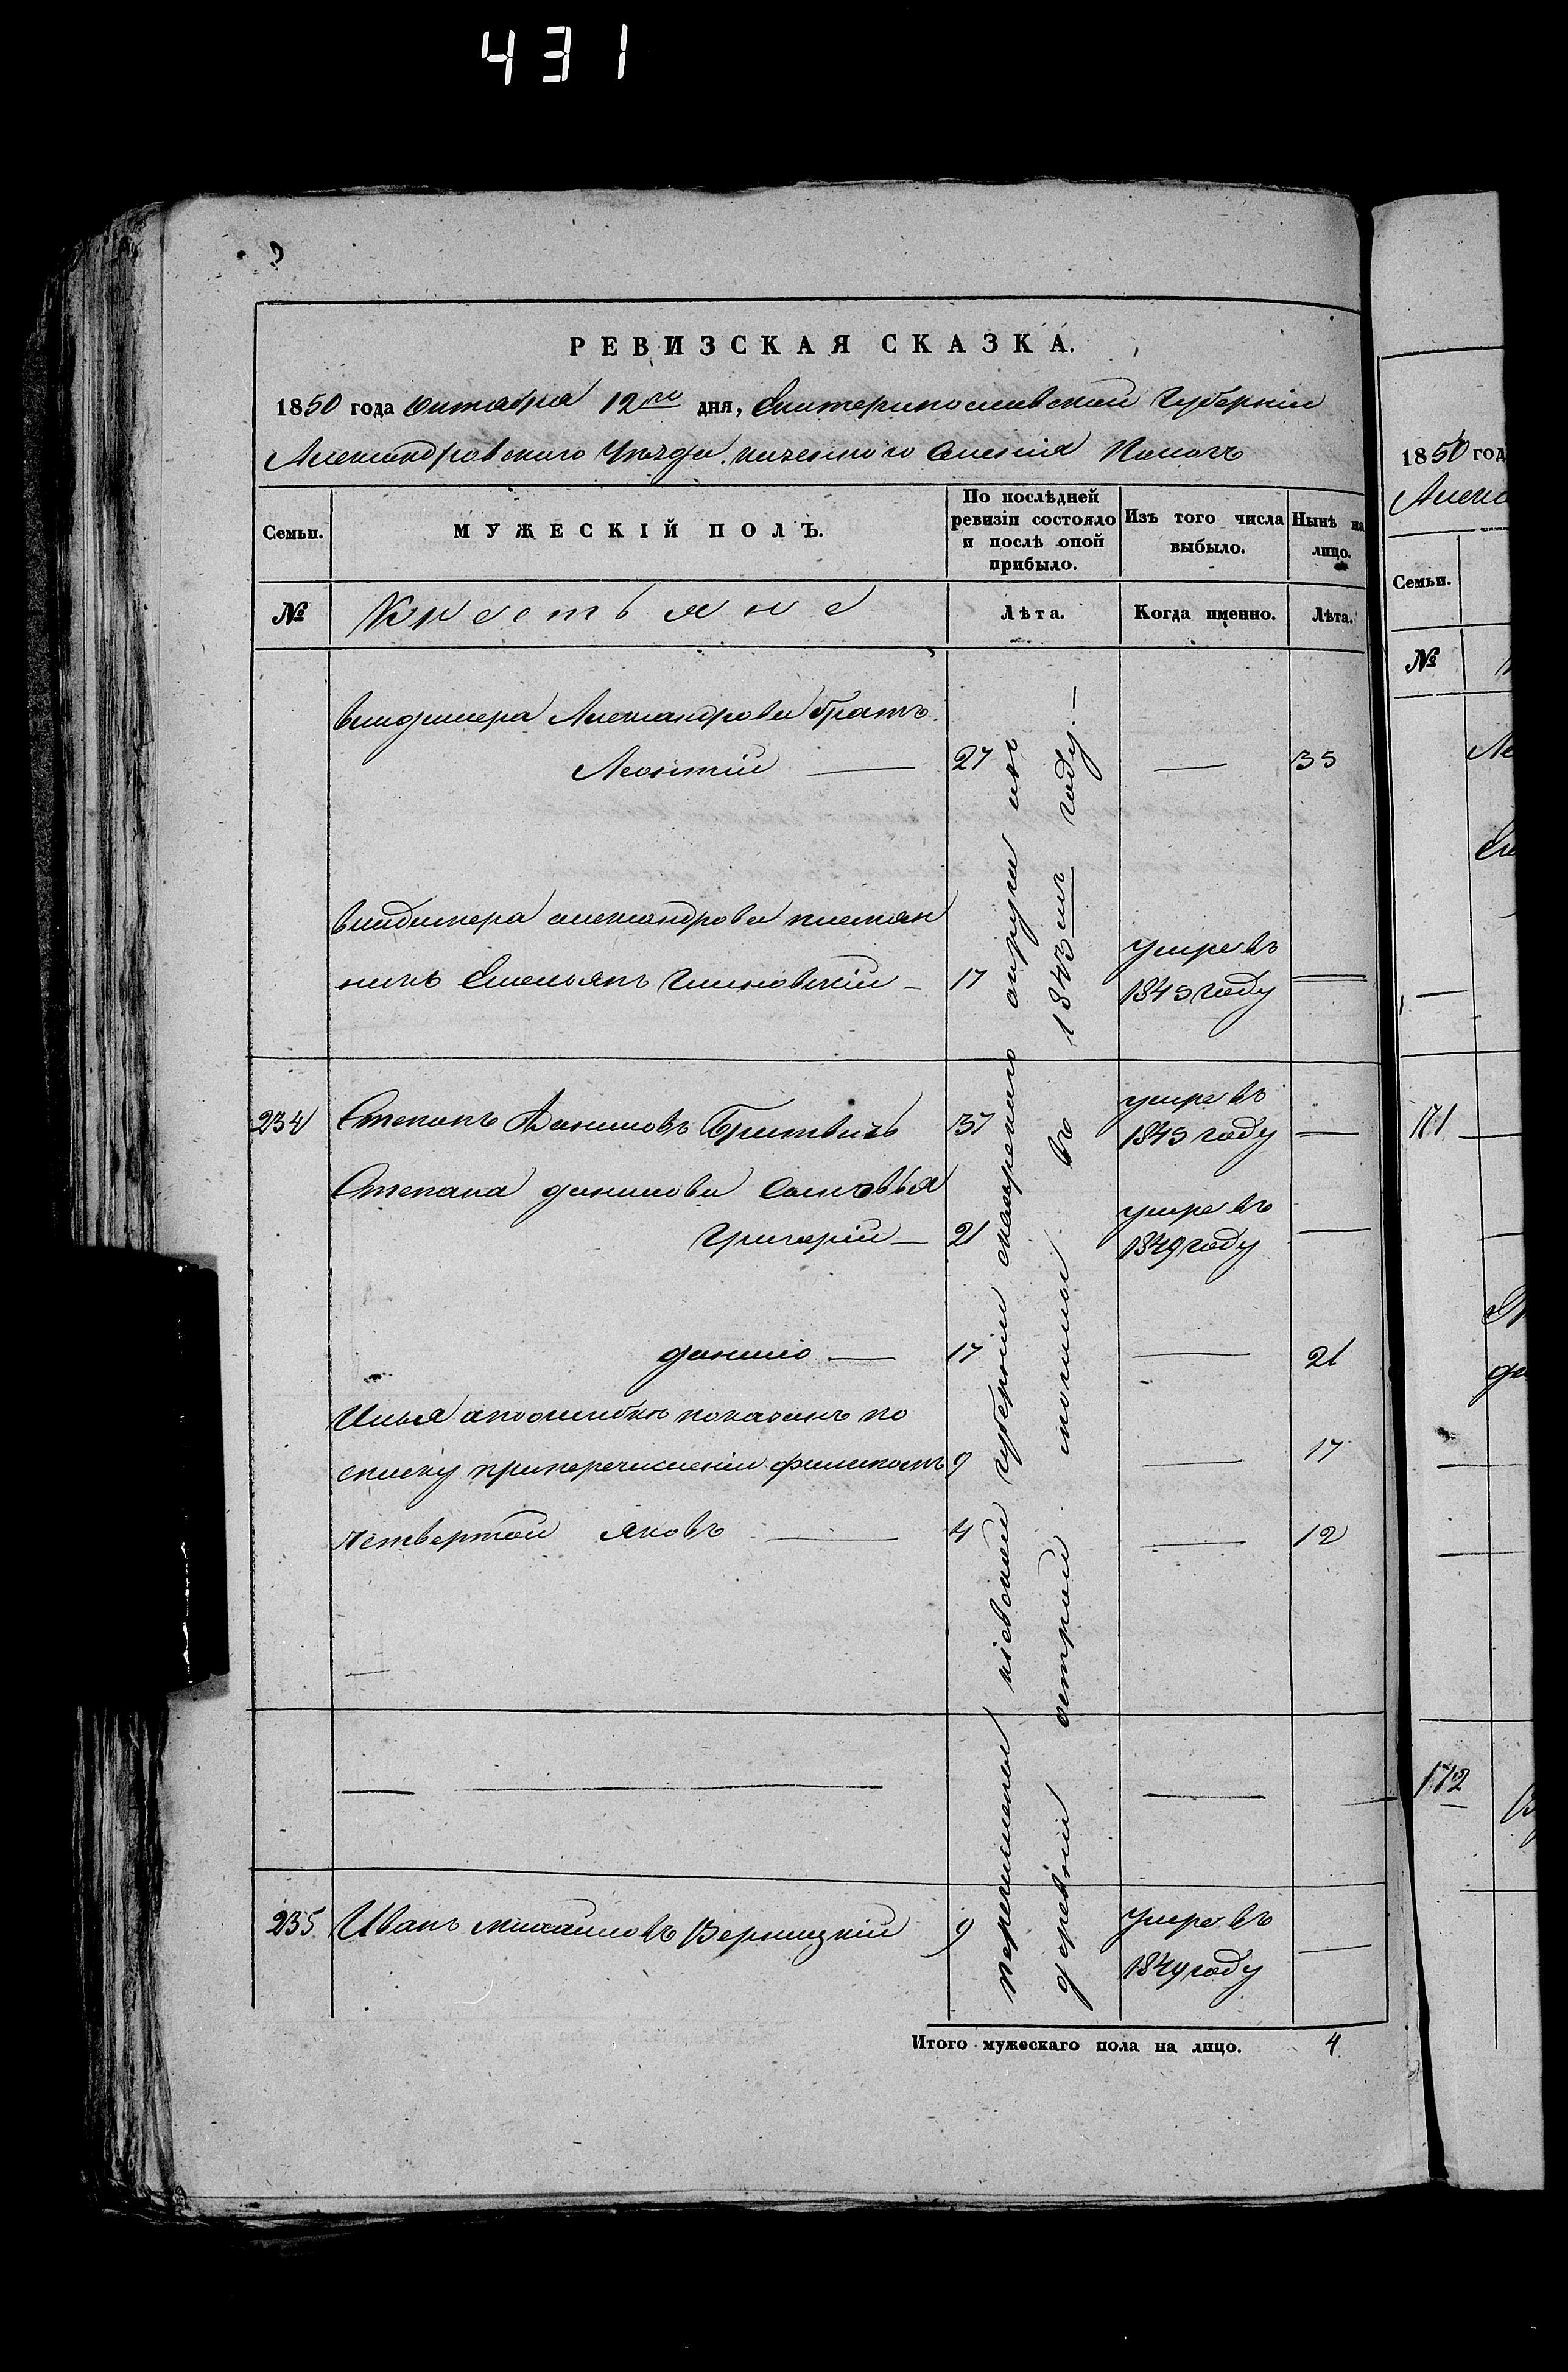 431
РЕВИЗСКАЯ СКАЗКА.
1850 года Октября 12го дня, Екатеринославской Губерніи
Александровского Уѣзда казенного Селенія Конскихъ
Семьи.
МУЖЕСКІЙ ПОЛЪ.
По послѣдней ревизіи состояло и послѣ оной прибыло.
Изъ того числа выбыло.
Нынѣ на лицо.
№ Крестьяне Лѣта. Когда именно. Лѣта.
Владимера Александрова братъ
Леонтій — 27 — 35
Владимера александрова племян
никъ Емельянъ — 17 умре въ 1845 году
234 Степанъ Даниловъ 37 умре въ 1845 году —
Степана данилова Сыновья
Григорій — 21 умре въ 1849 году —
данило — 17 — 21
Илья а поошибкѣ показанъ по
списку приперечисленіи филипомъ 9 — 17
четвертой яковъ — 4 — 12
235 Иванъ михаиловъ Верницкій 9 умре въ 1849 году —
кіевской губерніи округи изъ
деревни въ 1843мъ году. —
Итого мужескаго пола на лицо. 4
1850 год
Семьи.
№
171
172